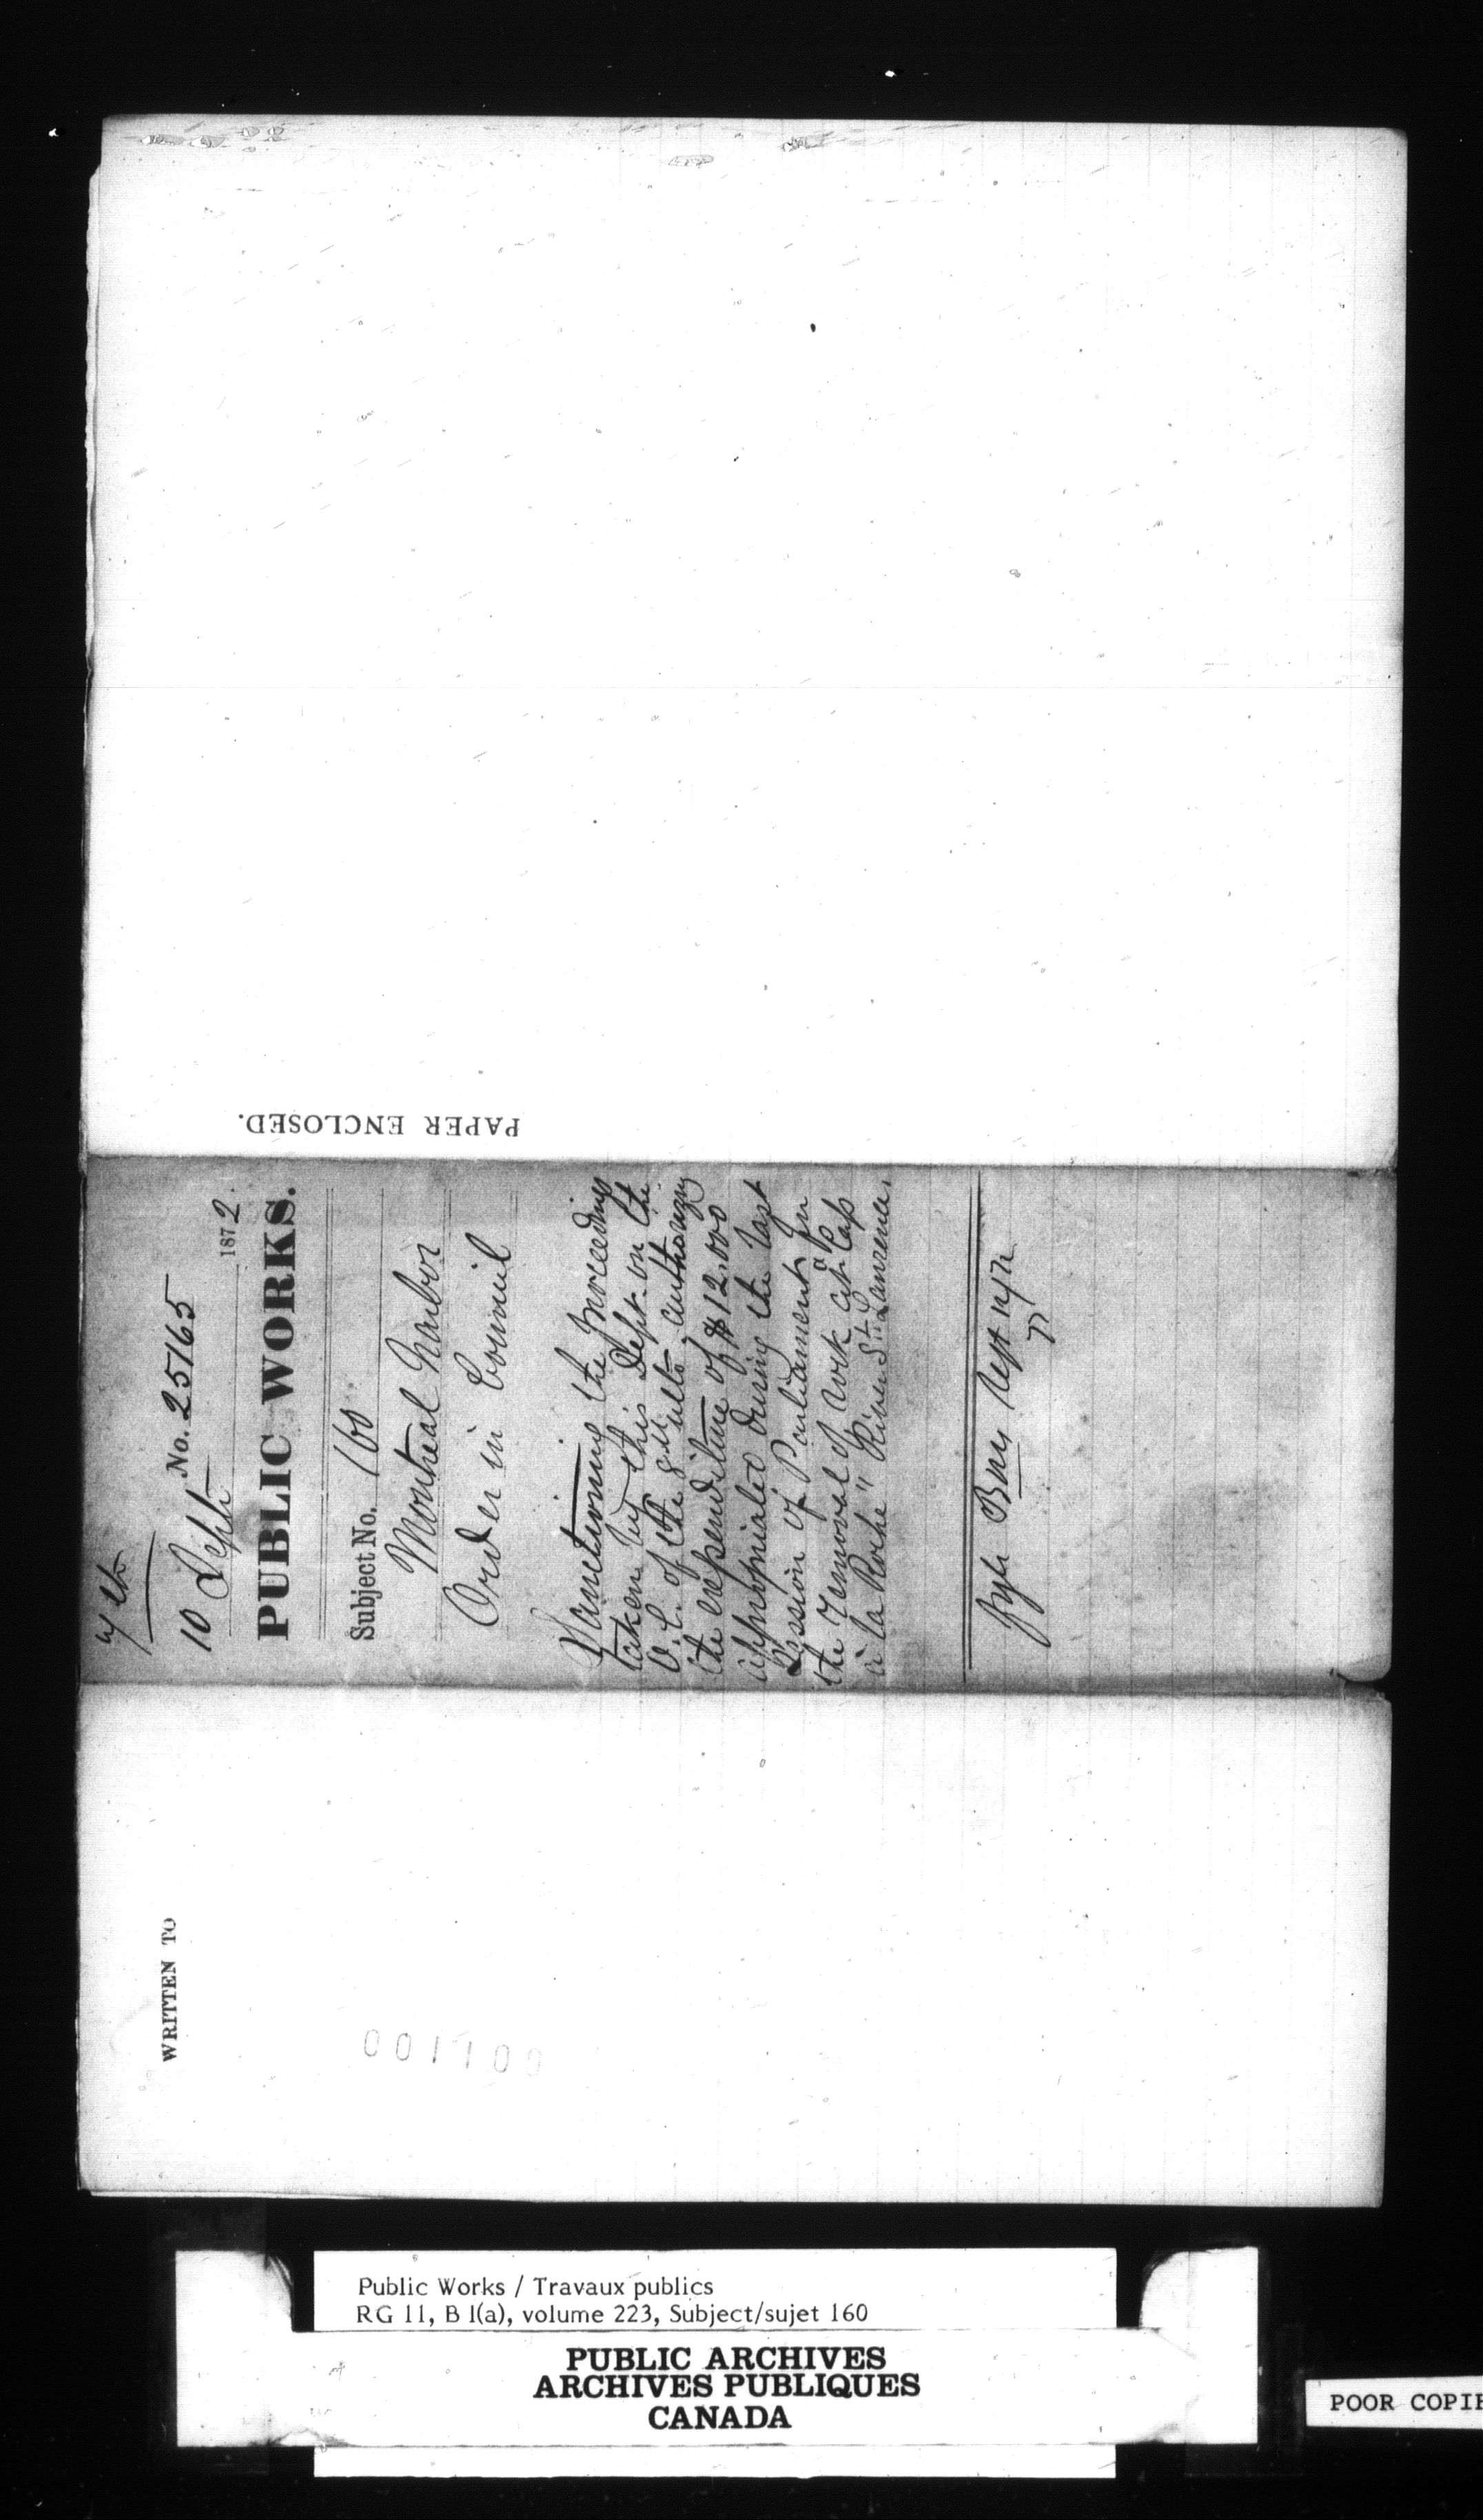 PAPER ENCLOSED.
No. 25165
10 Sept 1872.
PUBLIC WORKS.
Subject No. 160
Montreal Harbor
Order in Council
Sanctioning the proceedings
taken by this Dept. on the
O.C. of the ulto authorizing
the expenditure of $12.000
appropriated during the last
Session of Parliament for
the removal of rock at "Cap
à la Roche" River St. Lawrence,
WRITTEN TO
001100
Public Works / Travaux publics
RG 11, B 1(a), volume 223, Subject/sujet 160
PUBLIC ARCHIVES
ARCHIVES PUBLIQUES
CANADA
POOR COPIE